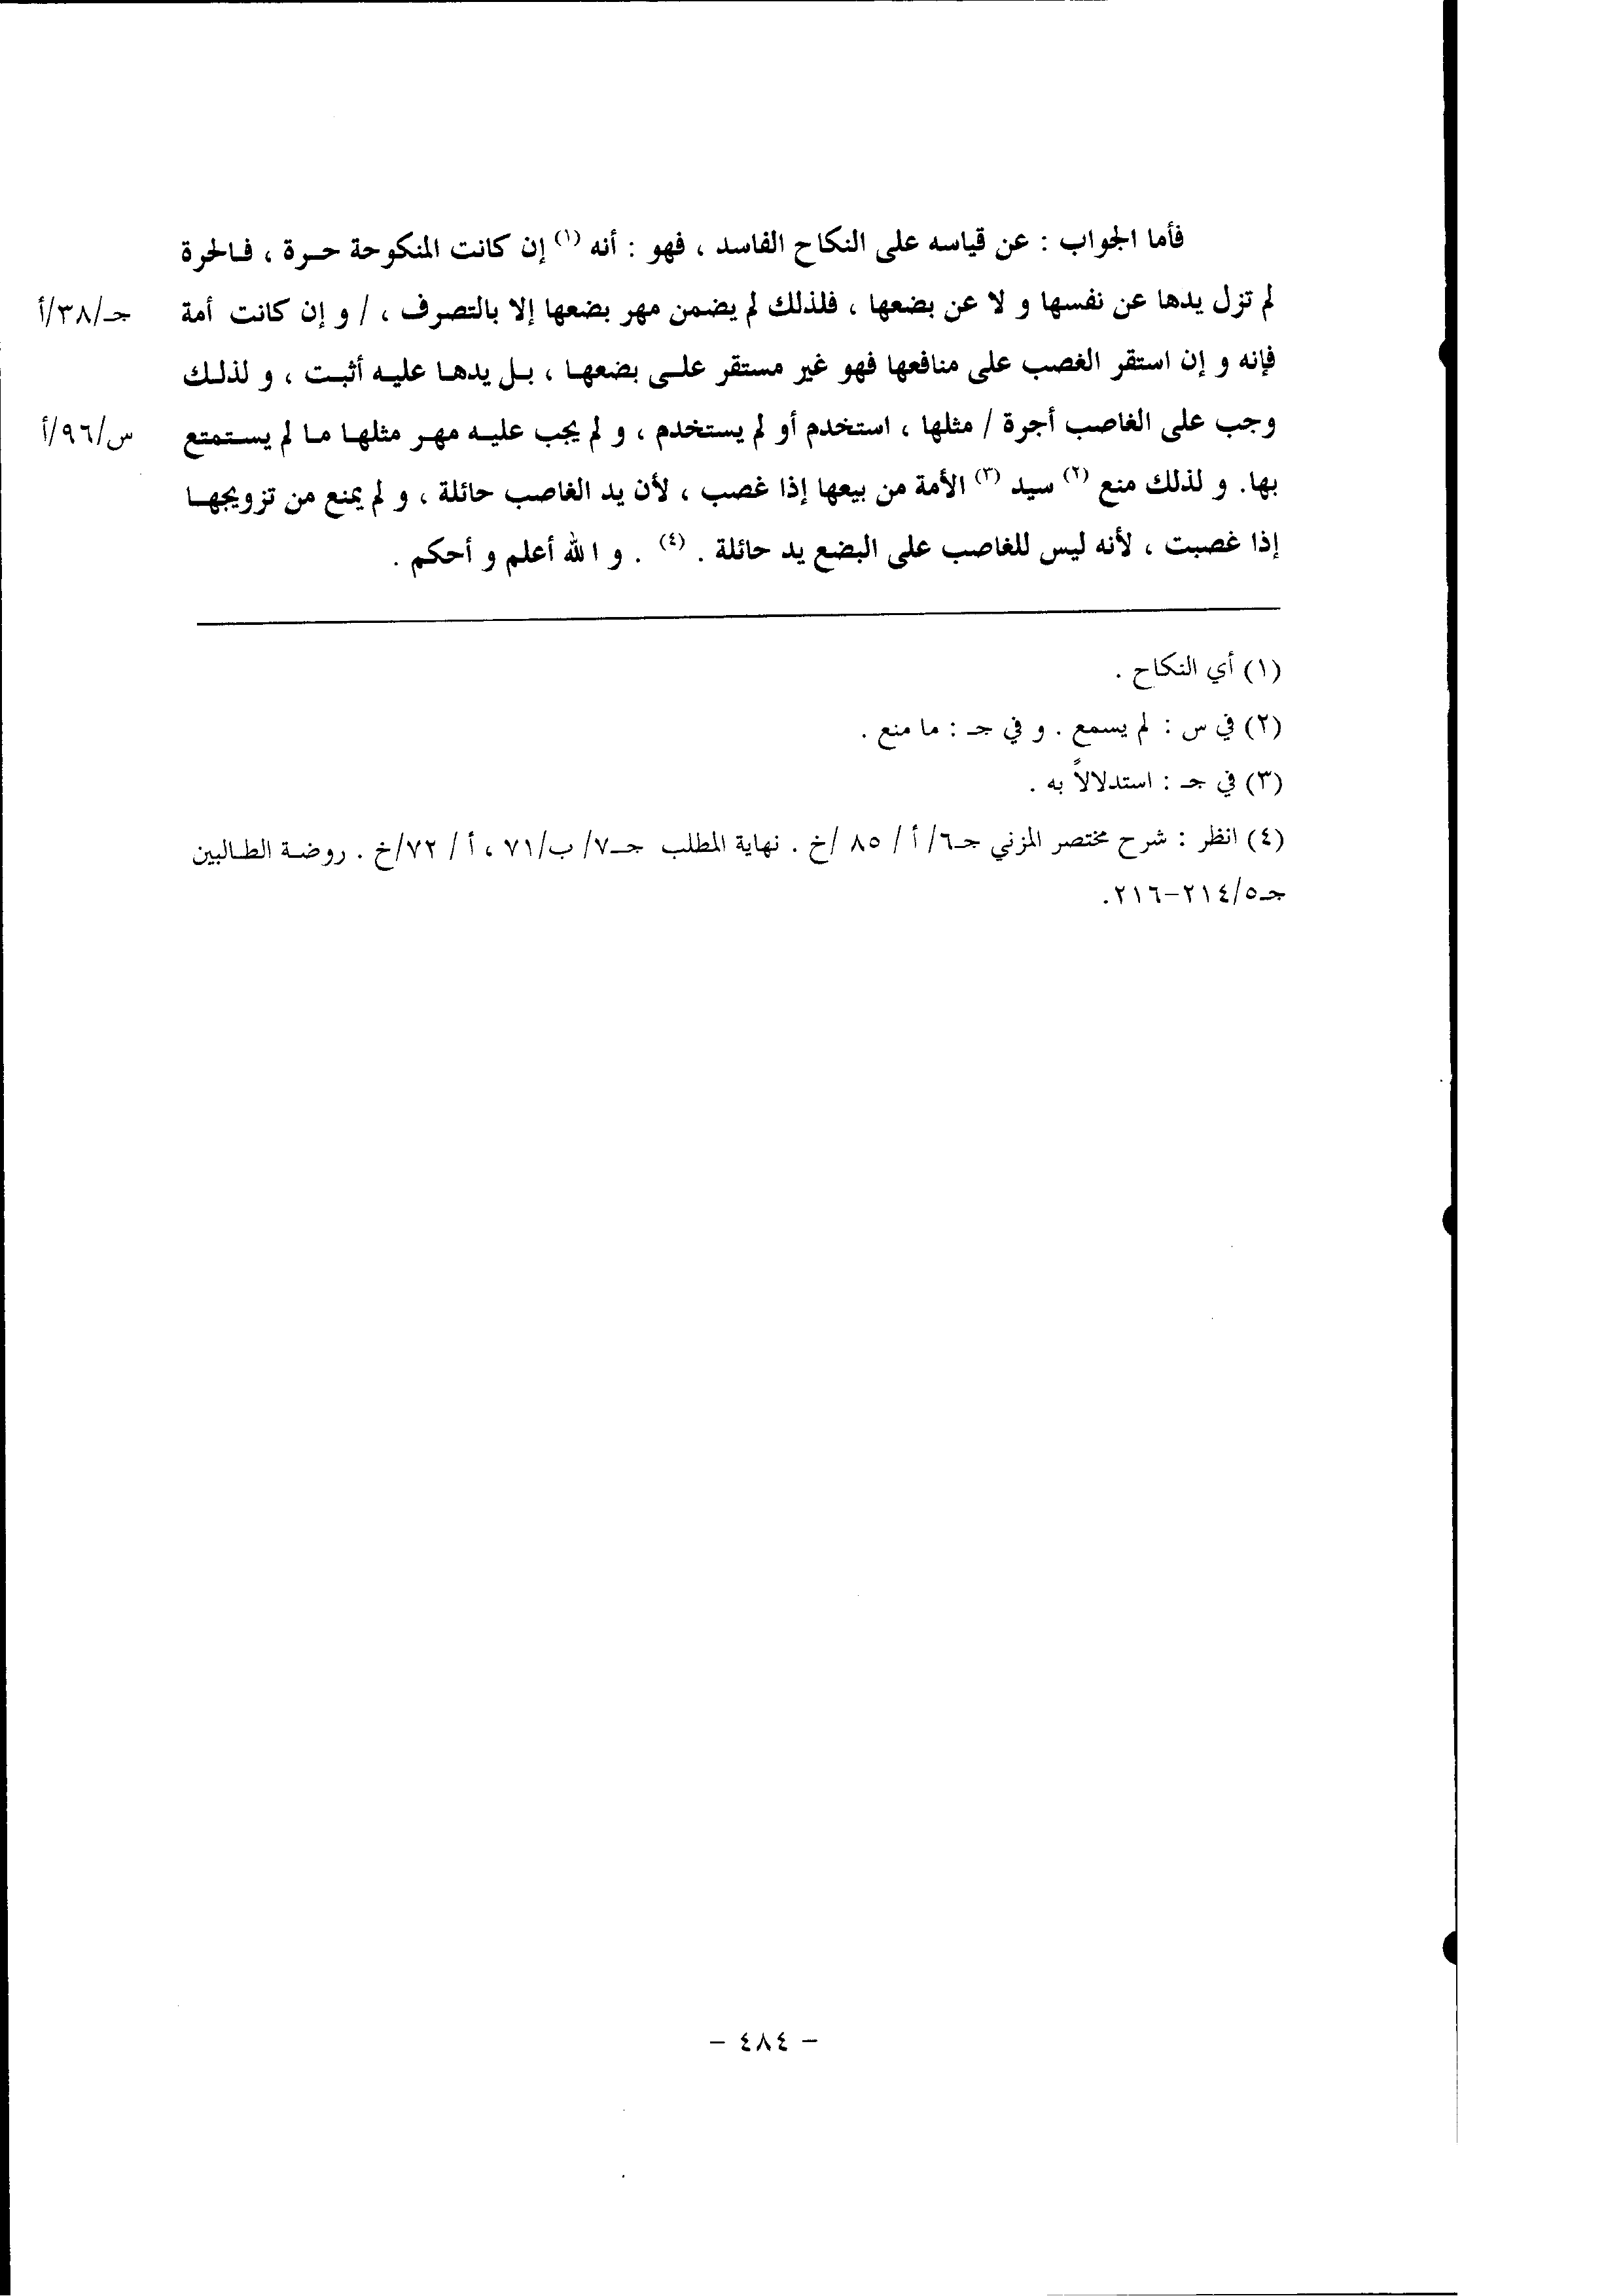 فأما الجواب : عن قياسه على النكاح الفاسد ، فهو : أنه (١) إن كانت المنكوحة حرة ، فالحرة
لم تزل يدها عن نفسها و لا عن بضعها ، فلذلك لم يضمن مهر بضعها إلا بالتصرف ، / و إن كانت أمة
جـ/٣٨/أ
فإنه و إن استقر الغصب على منافعها فهو غير مستقر على بضعها ، بل يدها عليه أثبت ، و لذلك
وجب على الغاصب أجرة / مثلها ، استخدم أو لم يستخدم ، و لم يجب عليه مهر مثلها ما لم يستمتع
س/٩٦/أ
بها. و لذلك منع (٢) سيد (٣) الأمة من بيعها إذا غصب ، لأن يد الغاصب حائلة ، و لم يمنع من تزويجها
إذا غصبت ، لأنه ليس للغاصب على البضع يد حائلة . (٤) . و الله أعلم و أحكم .
(١) أي النكاح .
(٢) في س : لم يسمع . و في جـ : ما منع .
(٣) في جـ : استدلالاً به .
(٤) انظر : شرح مختصر المزني جـ٦/ أ / ٨٥ /خ . نهاية المطلب جـ٧/ ب/٧١ ، أ / ٧٢/خ . روضة الطالبين
جـ٥/٢١٤-٢١٦.
- ٤٨٤ -